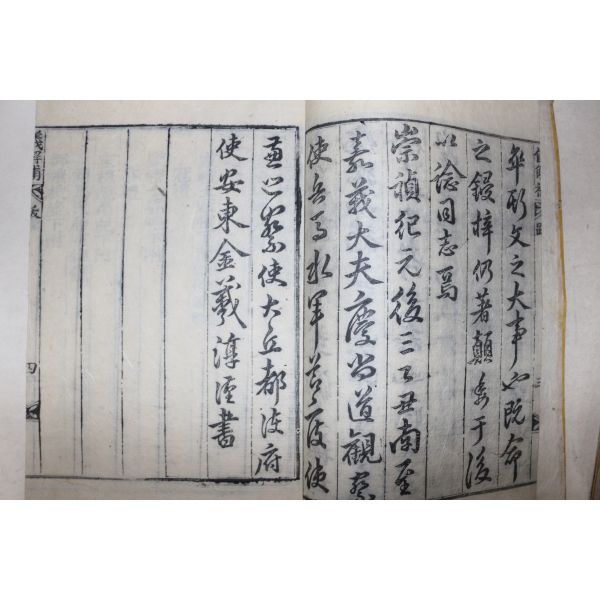 斯文之大事也既命
之鋟梓仍著顛委于後
以諗同志焉
崇禎紀元後三乙丑南至
嘉義大夫慶尚道觀察
使兵馬水軍節度使
兼巡察使大丘都護府
使安東金羲淳謹書
解補 跋 四
三